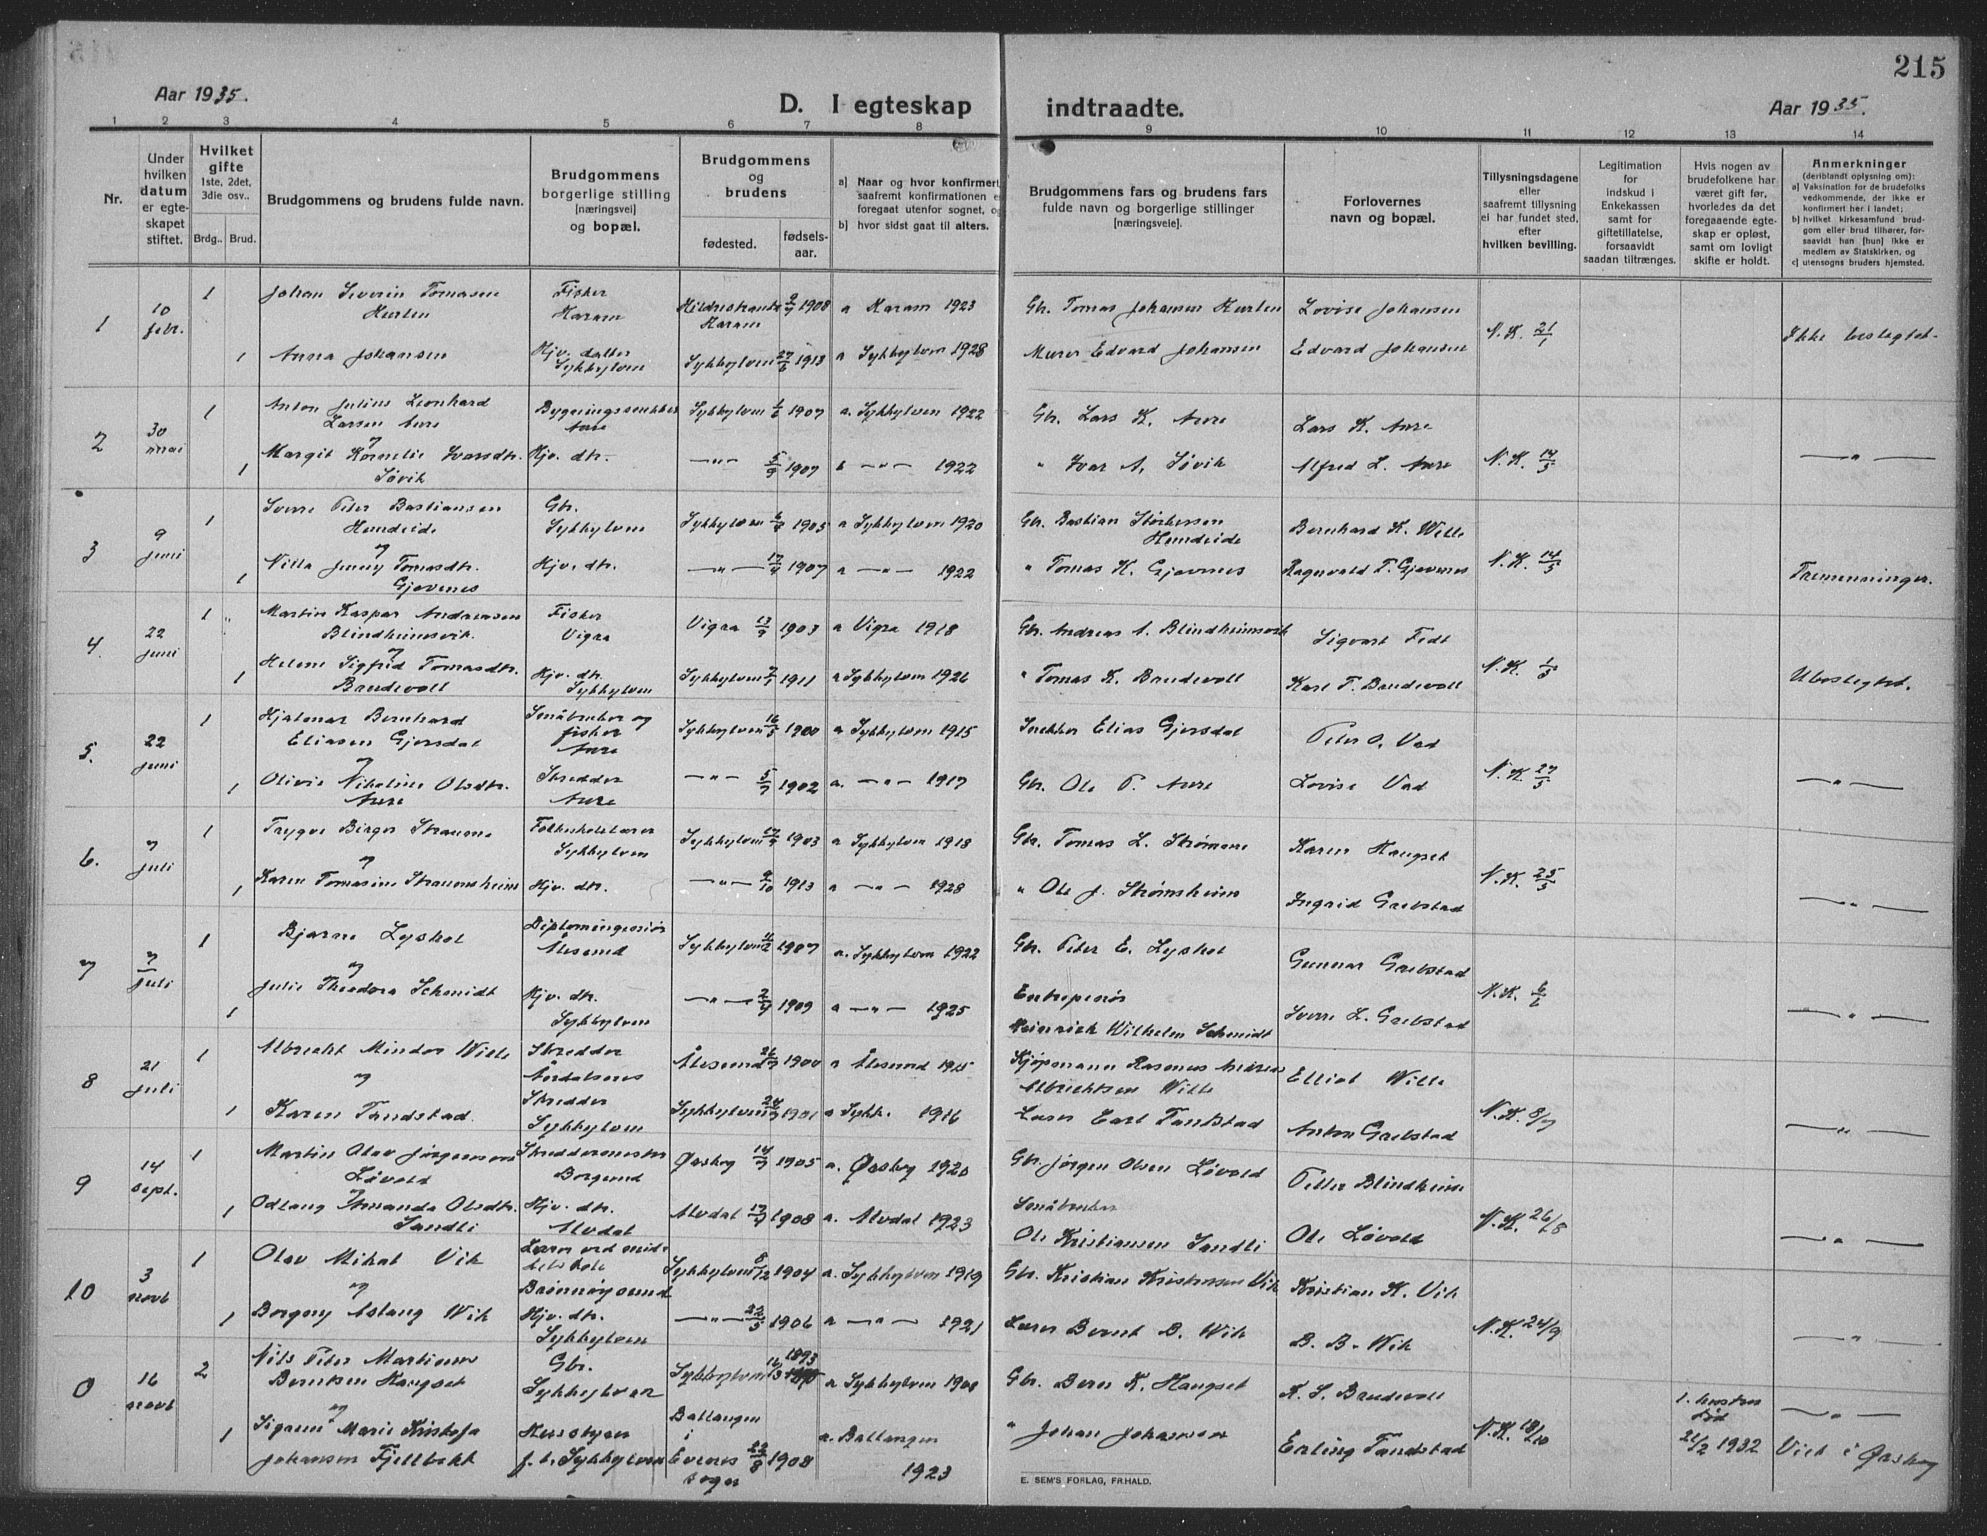 215
Aar 1935.
D. I egteskap
indtraadte.
Aar 1935.
1 2 3 4 5 6 7 8 9 10 11 12 13 14
Nr.
Under hvilken datum er egteskapet stiftet.
Hvilket gifte 1ste, 2det, 3die osv..
Brdg..
Brud.
Brudgommens og brudens fulde navn.
Brudgommens borgerlige stilling [næringsvei] og bopæl.
Brudgommens og brudens
fødested.
fødsels-aar.
a) Naar og hvor konfirmert,
saafremt konfirmationen e
foregaat utenfor sognet, og
b) hvor sidst gaat til alters.
Brudgommens fars og brudens fars
fulde navn og borgerlige stillinger
[næringsveie].
Forlovernes
navn og bopæl.
Tillysningsdagene
eller
saafremt tillysning
ei har fundet sted,
efter
hvilken bevilling.
Legitimation
for
indskud i
Enkekassen
samt for
giftetillatelse,
forsaavidt
saadan tiltrænges.
Hvis nogen av
brudefolkene har
været gift før,
hvorledes da det
foregaaende egte-
skap er opløst,
samt om lovligt
skifte er holdt.
Anmerkninger
(deriblandt oplysning om):
a) Vaksination for de brudefolks
vedkommende, der ikke er
konfirmert her i landet;
b) hvilket kirkesamfund brud-
gom eller brud tilhører, for-
saavidt han [hun] ikke er
medlem av Statskirken, og
c) utensogns bruders hjemsted.
1 10 febr. 1 Johan Severin Tomasen Hurlen Fisker Haram Hildrestranda Haram 2/7 1908 a Haram 1923 Gbr. Tomas Johansen Hurlen Lovise Johansen
1 Anna Johansen Hjv. datter Sykkylven Sykkylven 27/6 1913 a Sykkylven 1928 Murer Edvard Johansen Edvard Johansen N.K. 21/1 Ikke beslegtet.
2 30 mai 1 Anton Julius Leonhard Larsen Aure Bygningssnekker Aure Sykkylven 1/6 1907 a. Sykkylven 1922 Gbr. Lars K. Aure Lars K. Aure
og
1 Margit Kornelie Ivarsdtr. Søvik Hjv. dtr. —"— 5/9 1907 —"— 1922 " Ivar A. Søvik Alfred L. Aure N.K. 14/5 —"—
3 9 juni 1 Sverre Peter Bastiansen Hundeide Gbr. Sykkylven Sykkylven 6/4 1905 a Sykkylven 1920 Gbr. Bastian Hundeide Bernhard K. Wille
og
1 Nilla Jenny Tomasdtr. Gjevenes Hjv. dtr. —"— 17/4 1907 a —"— 1922 " Tomas K. Gjevenes Ragnvald T. Gjevenes N.K. 14/5 Tremenninger.
4. 22 juni 1 Martin Kaspar Andreasen Blindheimsvik. Fisker Vigra Vigra 13/7 1903 a Vigra 1918 Gbr. Andreas A. Blindheimsvik Sigvart Fedt
og
1 Helene Sigfrid Tomasdtr. Brudevoll Hjv. dtr. Sykkylven Sykkylven 1911 a Sykkylven 1926 " Tomas K. Brudevoll Karl T. Brudevoll N.K. 1/5 Ubeslegtet.
5. 22 juni 1 Hjalmar Bernhard Eliasen Gjersdal Småbruker og fisker Aure Sykkylven 16/5 1900 a Sykkylven 1915 Snekker Elias Gjersdal Peter O. Vad
og
1 Olivie Nikoline Olsdtr. Aure Skredder Aure —"— 5/7 1902 a. —"— 1917 Gbr. Ole P. Aure Lovise Vad N.K. 27/5 —"—
6. 7 juli 1 Trygve Birger Straume Folkeskolelærer Sykkylven Sykkylven 1903 a Sykkylven 1918 Gbr. Tomas L. Strømme Karen Haugset
og
1 Karen Tomasine Straumsheim Hjv. dtr. —"— 9/10 1913 a —"— 1928 " Ole J. Strømsheim Ingrid Grebstad N.K. 25/5 —"—
7 7 juli 1 Bjarne Lyshol Diplomingeniør Ålesund Sykkylven 1907 a. Sykkylven 1922 Gbr. Peter E. Lyshol Gunnar Grebstad
og
1 Julie Theodora Schmidt Hjv. dtr. Sykkylven —"— 2/4 1909 a —"— 1925 Entreprenør Heinrich Wilhelm Schmidt Sverre L. Grebstad N.K. 6/6 —"—
8 21 juli 1 Albrecht Mindor Wille Skredder Åndalsnes Ålesund 1900 a Ålesund 1915 Kjøpmann Rasmus Andreas Albrichtsen Wille Elliot Wille
og
1 Karen Tandstad. Skredder Sykkylven Sykkylven 1901 a Sykk. 1916 Lærer Carl Tandstad Anton Grebstad N.K. 8/7 —"—
9 14 sept. 1 Martin Olav Jørgensen Løvold Skreddermester Borgund Ørskog 14/7 1905 a. Ørskog 1920 Gbr. Jørgen Olsen Løvold Petter Blindheim
og
1 Odlaug Amanda Olsdtr. Sandli Hjv. dtr. Alvdal Alvdal 1908 a. Alvdal 1923 Småbruker Ole Kristiansen Sandli Ole Løvold N.K. 26/8 —"—
10 3 novb 1 Olav Mikal Vik Lærer ved middelskole Brønnøysund Sykkylven 8/12 1904 a. Sykkylven 1919 Gbr. Kristian Kristensen Vik Kristian K. Vik
og
1 Borgny Aslaug Wik Hjv. dtr. Sykkylven —"— 22/5 1906 a —"— 1921 Lærer Bernt B. Wik B. B. Wik N.K. 24/9 —"—
0 16 novb 2 Nils Peter Martinus Berntsen Haugset Gbr. Sykkylven Sykkylven 16/3 1893 a Sykkylven 1908 Gbr. Bern K. Haugset K. S. Brudevoll
og
1 Marie Kristofa Johansen Fjellbekk f. t. Sykkylven Ballangen i Evenes sogn 22/8 1908 a. Ballangen 1923 " Johan Johansen Erling Tandstad N.K. 18/10 1. hustru død 21/2 1932 —"— Viet i Ørskog
E. SEM'S FORLAG, FR.HALD.